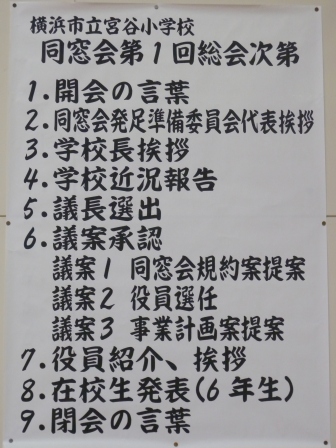 横浜市立宮谷小学校
同窓会第1回総会次第
1.開会の言葉
2.同窓会発足準備委員会代表挨拶
3.学校長挨拶
4.学校近況報告
5.議長選出
6.議案承認
議案1 同窓会規約案提案
議案2 役員選任
議案3 事業計画案提案
7.役員紹介、挨拶
8.在校生発表(6年生)
9.閉会の言葉